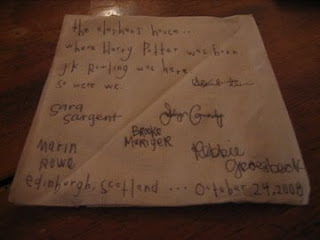 the elephant house...
where Harry Potter was born
JK Rowling was here.
so were we.
Sara
Sargent
Brooke
Marin
Rowe
Robbie
edinburgh, scotland ... October 24, 2008